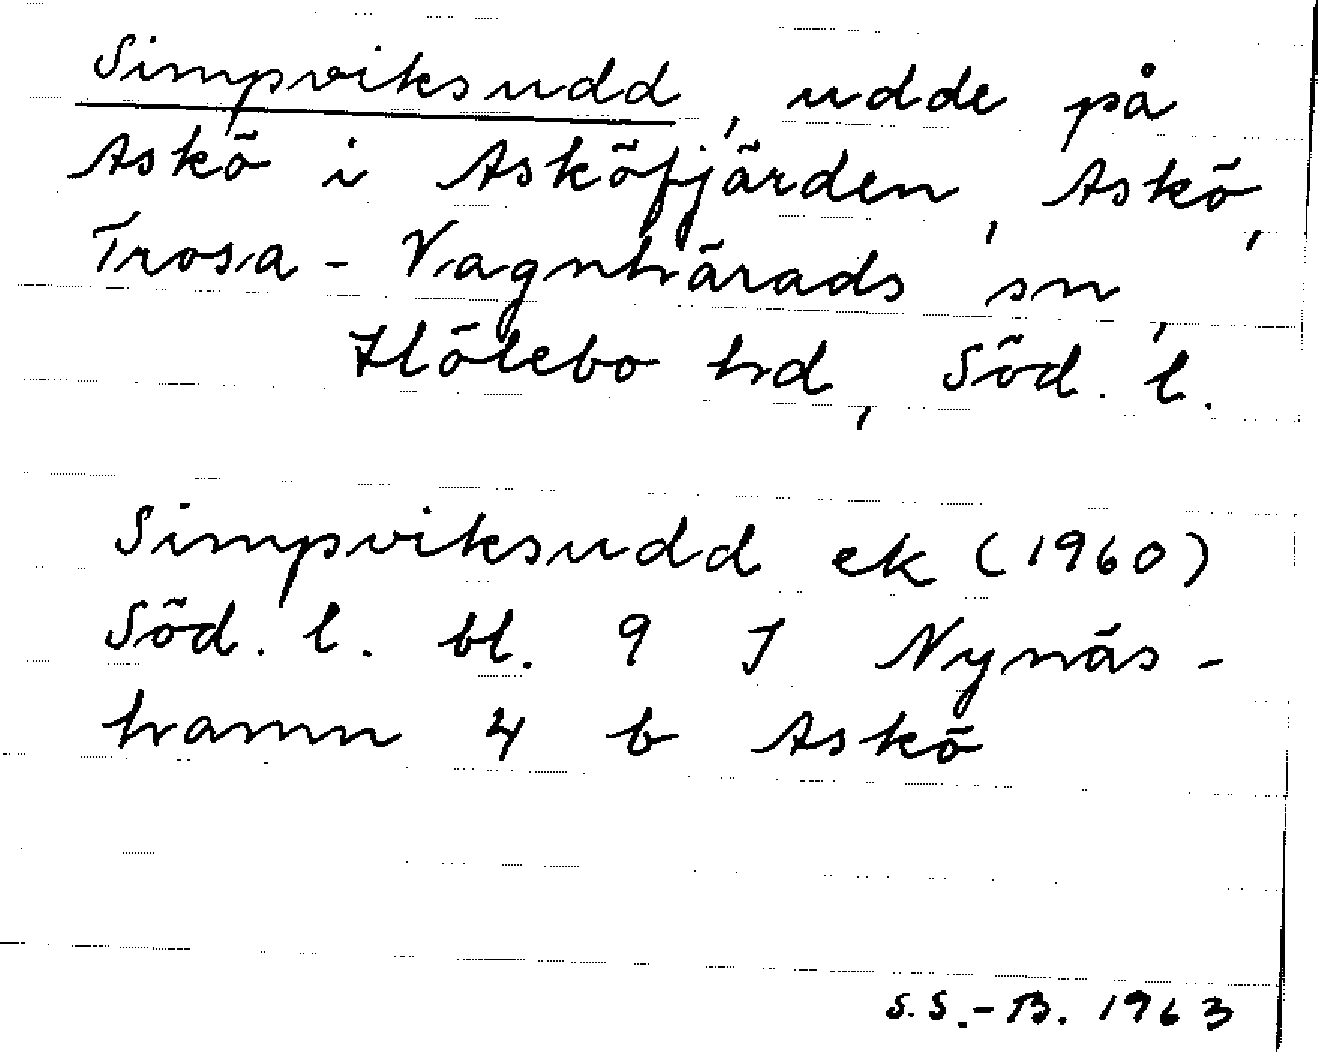 Simpviksudd, udde på
Askö i Asköfjärden, Askö,
Trosa - Vagnhärads sn,
Hölebo hd, Söd. l.
Simpviksudd ek (1960)
Söd. l. bl. 9 I Nynäs-
hamn 4 b Askö
S.S.-B. 1963